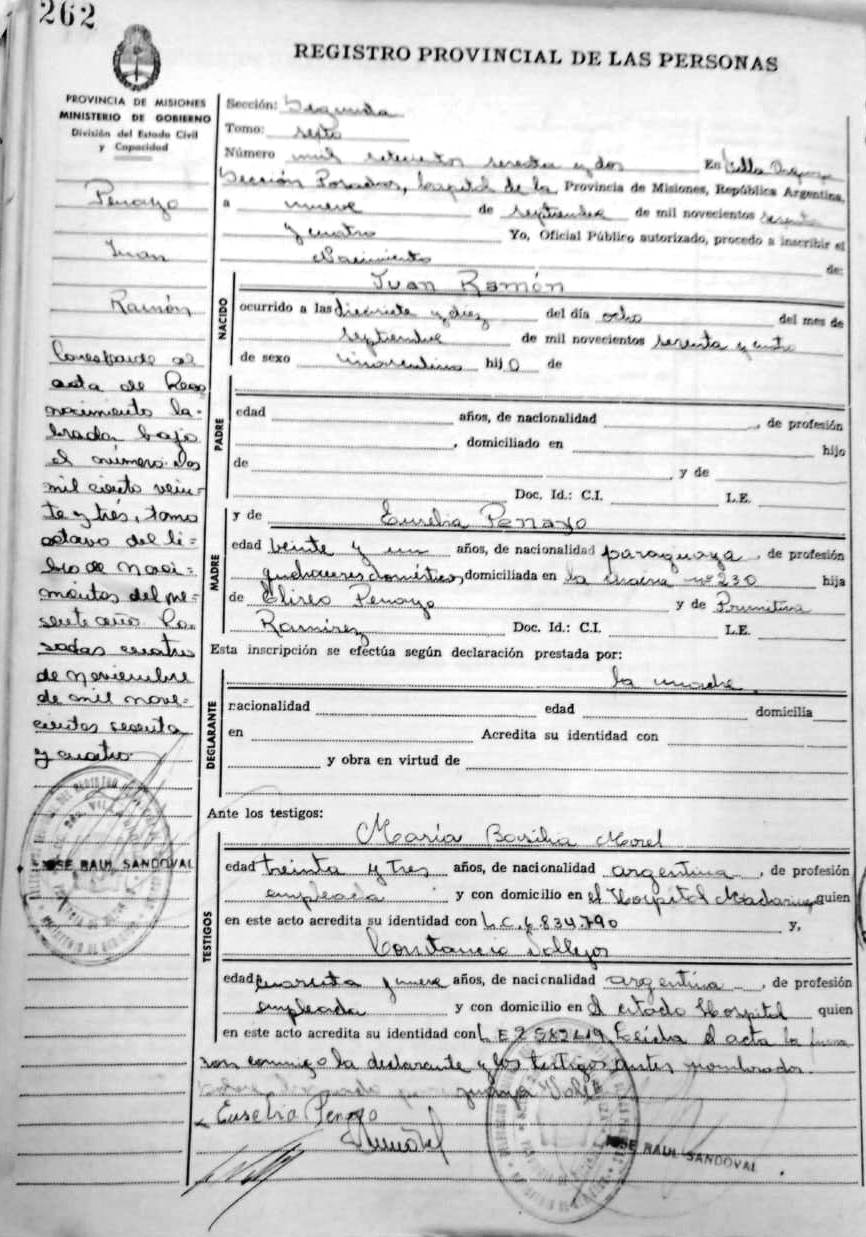 262
REGISTRO PROVINCIAL DE LAS PERSONAS
PROVINCIA DE MISIONES
MINISTERIO DE GOBIERNO
División del Estado Civil
y Capacidad
Penayo
Juan
Ramón
Corresponde al
acta de Reco
nocimiento la-
brada bajo
el número dos
mil ciento vein-
te y tres, tomo
octavo del li-
bro de naci-
mientos del pre-
sente año. Po-
sadas cuatro
de noviembre
de mil nove-
cientos sesenta
y cuatro.
JOSE RAUL SANDOVAL
Sección: Segunda
Tomo: sexto
Número mil setecientos sesenta y dos En Villa Urquiza
Sección Posadas, Capital de la Provincia de Misiones, República Argentina,
a nueve de septiembre de mil novecientos sesenta
y cuatro Yo, Oficial Público autorizado, procedo a inscribir el
Nacimiento de:
NACIDO
Juan Ramón
ocurrido a las diecisiete y diez del día ocho del mes de
septiembre de mil novecientos sesenta y cuatro
de sexo masculino hijo de
PADRE
edad años, de nacionalidad , de profesión
, domiciliado en hijo
de y de
Doc. Id.: C.I. L.E.
MADRE
y de Eusebia Penayo
edad veinte y un años, de nacionalidad paraguaya , de profesión
quehaceres domésticos, domiciliada en la nº 230 hija
de Eliseo Penayo y de Primitiva
Ramírez Doc. Id.: C.I. L.E.
Esta inscripción se efectúa según declaración prestada por:
DECLARANTE
la madre
nacionalidad edad domicilia
en Acredita su identidad con
y obra en virtud de
Ante los testigos:
TESTIGOS
María Basilia Morel
edad treinta y tres años, de nacionalidad argentina , de profesión
empleada y con domicilio en el Hospital Madariaga quien
en este acto acredita su identidad con L.C. 6.834.790 y,
Constancio Vallejos
edad cuarenta y nueve años, de nacionalidad argentina , de profesión
empleada y con domicilio en el citado Hospital quien
en este acto acredita su identidad con L E 2 582619 Leída el acta la firma
ron conmigo la declarante y los testigos antes nombrados.
paraguaya Vale
Eusebia Penayo
JOSE RAUL SANDOVAL